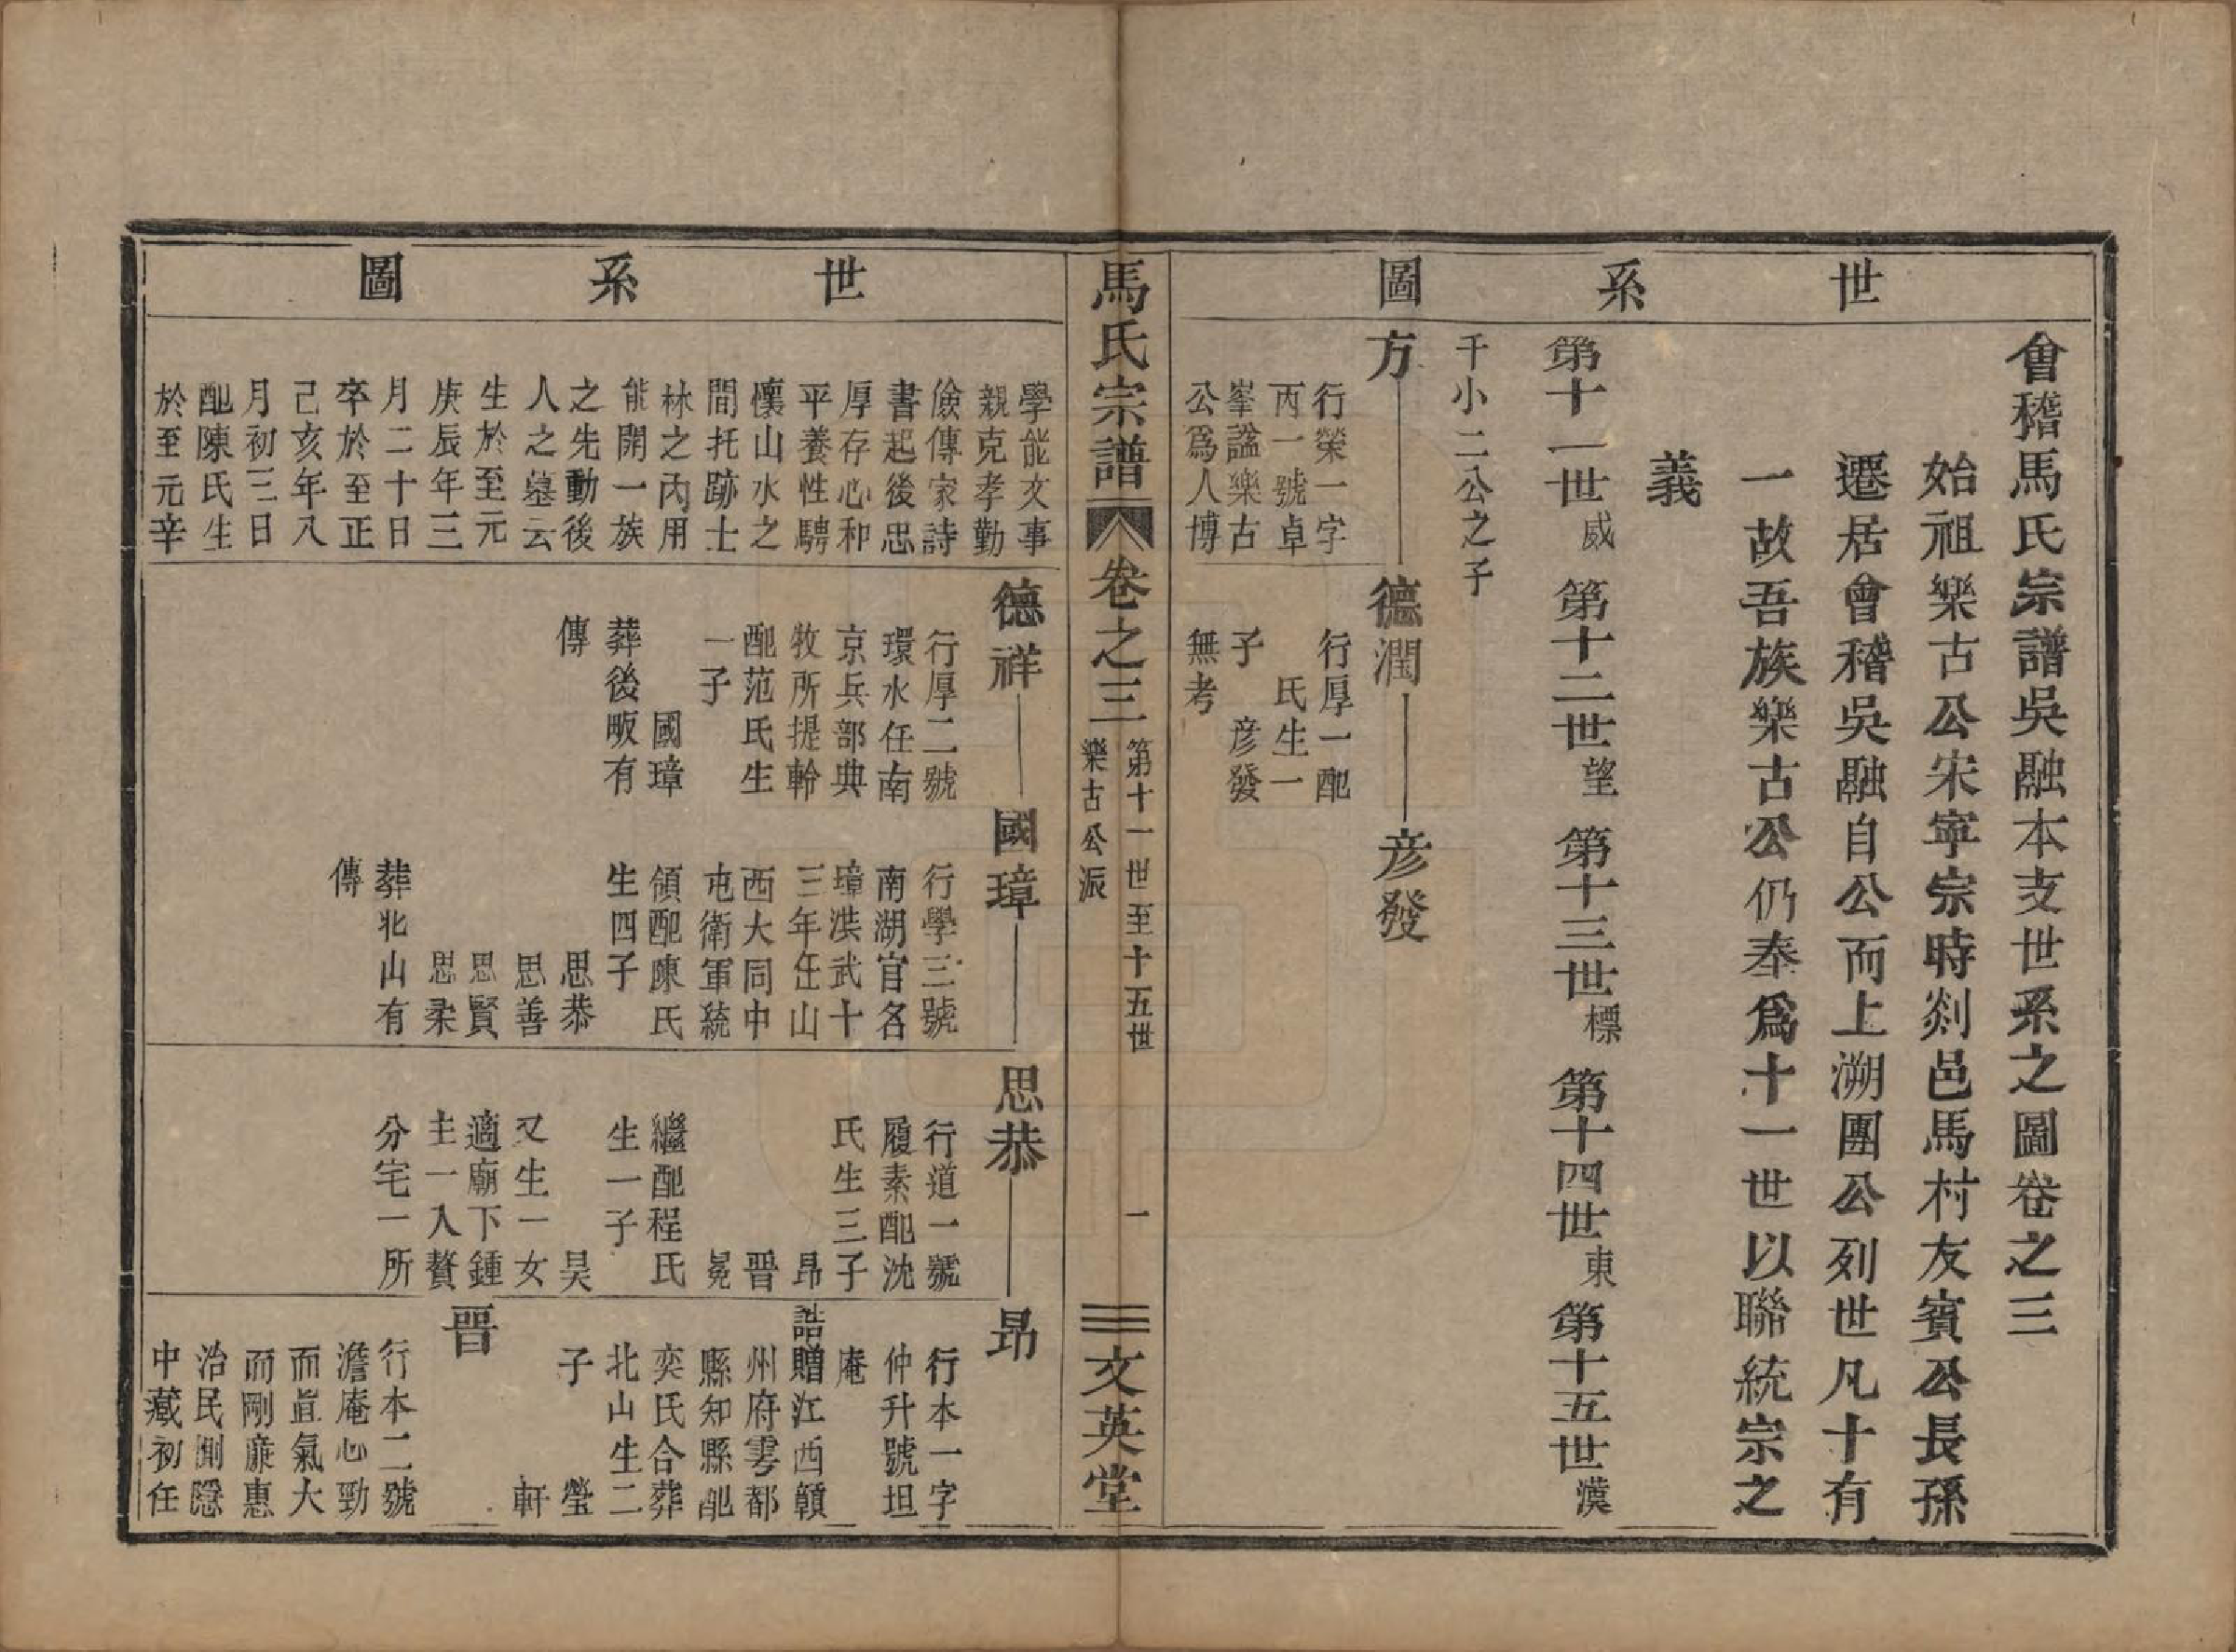 世系圖
會稽馬氏宗譜吳融本支世系之圖卷之三
始祖樂古公宋寧宗時剡邑馬村友賓公長孫
遷居會稽吳融自公而上溯團公列世凡十有
一故吾族樂古公仍奉爲十一世以聯統宗之
義
第十一世威 第十二世望 第十三世標 第十四世東 第十五世漢
千小二公之子
方
行榮一字
丙一號卓
峯謚樂古
公爲人博
德潤
行厚一配
氏生一
子 彦發
無考
彦發
馬氏宗譜 卷之三 第十一世至十五世 樂古公派 一 文英堂
世系圖
學能文事
親克孝勤
儉傳家詩
書起後忠
厚存心和
平養性騁
懷山水之
間托跡士
林之內用
能開一族
之先動後
人之墓云
生於至元
庚辰年三
月二十日
卒於至正
己亥年八
月初三日
配陳氏生
於至元辛
德祥
行厚二號
環水任南
京兵部典
牧所提幹
配范氏生
一子
國璋
葬後畈有
傳
國璋
行學三號
南湖官名
璋洪武十
三年任山
西大同中
屯衛軍統
領配陳氏
生四子
思恭
思善
思賢
思柔
葬北山有
傳
思恭
行道一號
履素配沈
氏生三子
昂
晉
冕
繼配程氏
生一子
昊
又生一女
適廟下鍾
主一入贅
分宅一所
昂
行本一字
仲升號坦
庵
誥贈江西贛
州府雩都
縣知縣配
奕氏合葬
北山生二
子 瑩
軒
晉
行本二號
澹庵心勁
而直氣大
而剛廉惠
治民惻隱
中藏初任